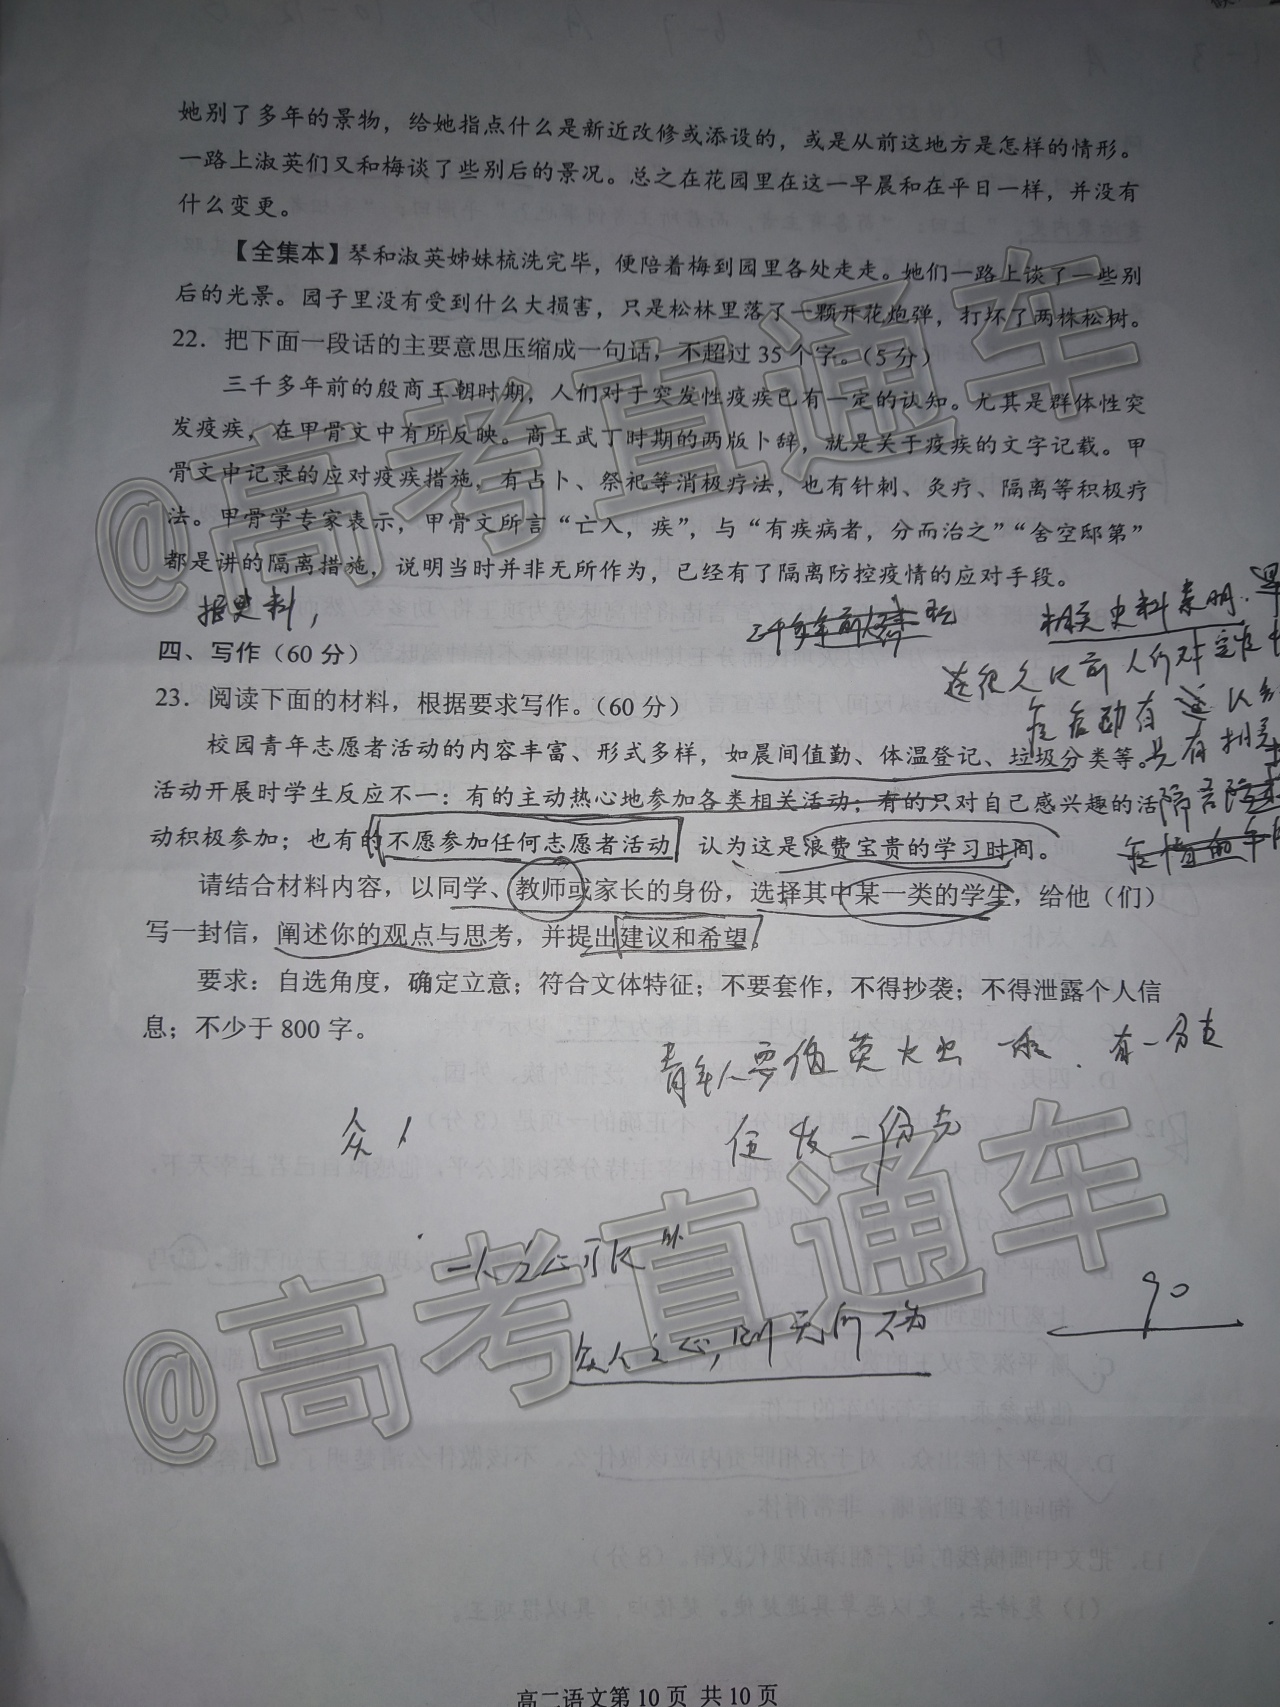 她别了多年的景物，给她指点什么是新近改修或添设的，或是从前这地方是怎样的情形。
一路上淑英们又和梅谈了些别后的景况。总之在花园里在这一早晨和在平日一样，并没有
什么变更。
【全集本】琴和淑英姊妹梳洗完毕，便陪着梅到园里各处走走。她们一路上谈了一些别
后的光景。园子里没有受到什么大损害，只是松林里落了一颗开花炮弹，打坏了两株松树。
22．把下面一段话的主要意思压缩成一句话，不超过 35 个字。（5 分）
三千多年前的殷商王朝时期，人们对于突发性疫疾已有一定的认知。尤其是群体性突
发疫疾，在甲骨文中有所反映。商王武丁时期的两版卜辞，就是关于疫疾的文字记载。甲
骨文中记录的应对疫疾措施，有占卜、祭祀等消极疗法，也有针刺、灸疗、隔离等积极疗
法。甲骨学专家表示，甲骨文所言“亡入，疾”，与“有疾病者，分而治之”“舍空邸第”
都是讲的隔离措施，说明当时并非无所作为，已经有了隔离防控疫情的应对手段。
据史料，
相关史料表明，早
在很久以前人们对
四、写作（60 分）
23．阅读下面的材料，根据要求写作。（60 分）
校园青年志愿者活动的内容丰富、形式多样，如晨间值勤、体温登记、垃圾分类等。
具有相关
活动开展时学生反应不一：有的主动热心地参加各类相关活动；有的只对自己感兴趣的活
动积极参加；也有的不愿参加任何志愿者活动，认为这是浪费宝贵的学习时间。
请结合材料内容，以同学、教师或家长的身份，选择其中某一类的学生，给他（们）
写一封信，阐述你的观点与思考，并提出建议和希望。
要求：自选角度，确定立意；符合文体特征；不要套作，不得抄袭；不得泄露个人信
息；不少于 800 字。
青年人要像萤火虫一般，有一分
发一分光
众人
众人之心，则无所不为
90
高二语文第 10 页 共 10 页
@高考直通车
@高考直通车